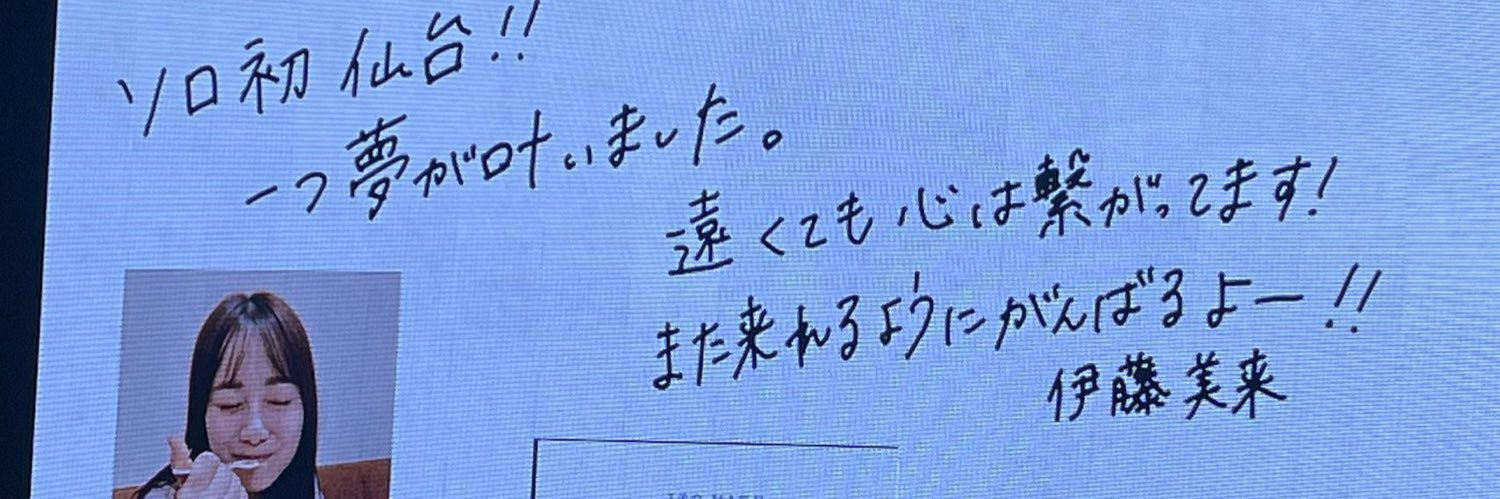 ソロ初仙台!!
一つ夢が叶いました。
遠くても心は繋がってます!
また来れるようにがんばるよー!!
伊藤美来